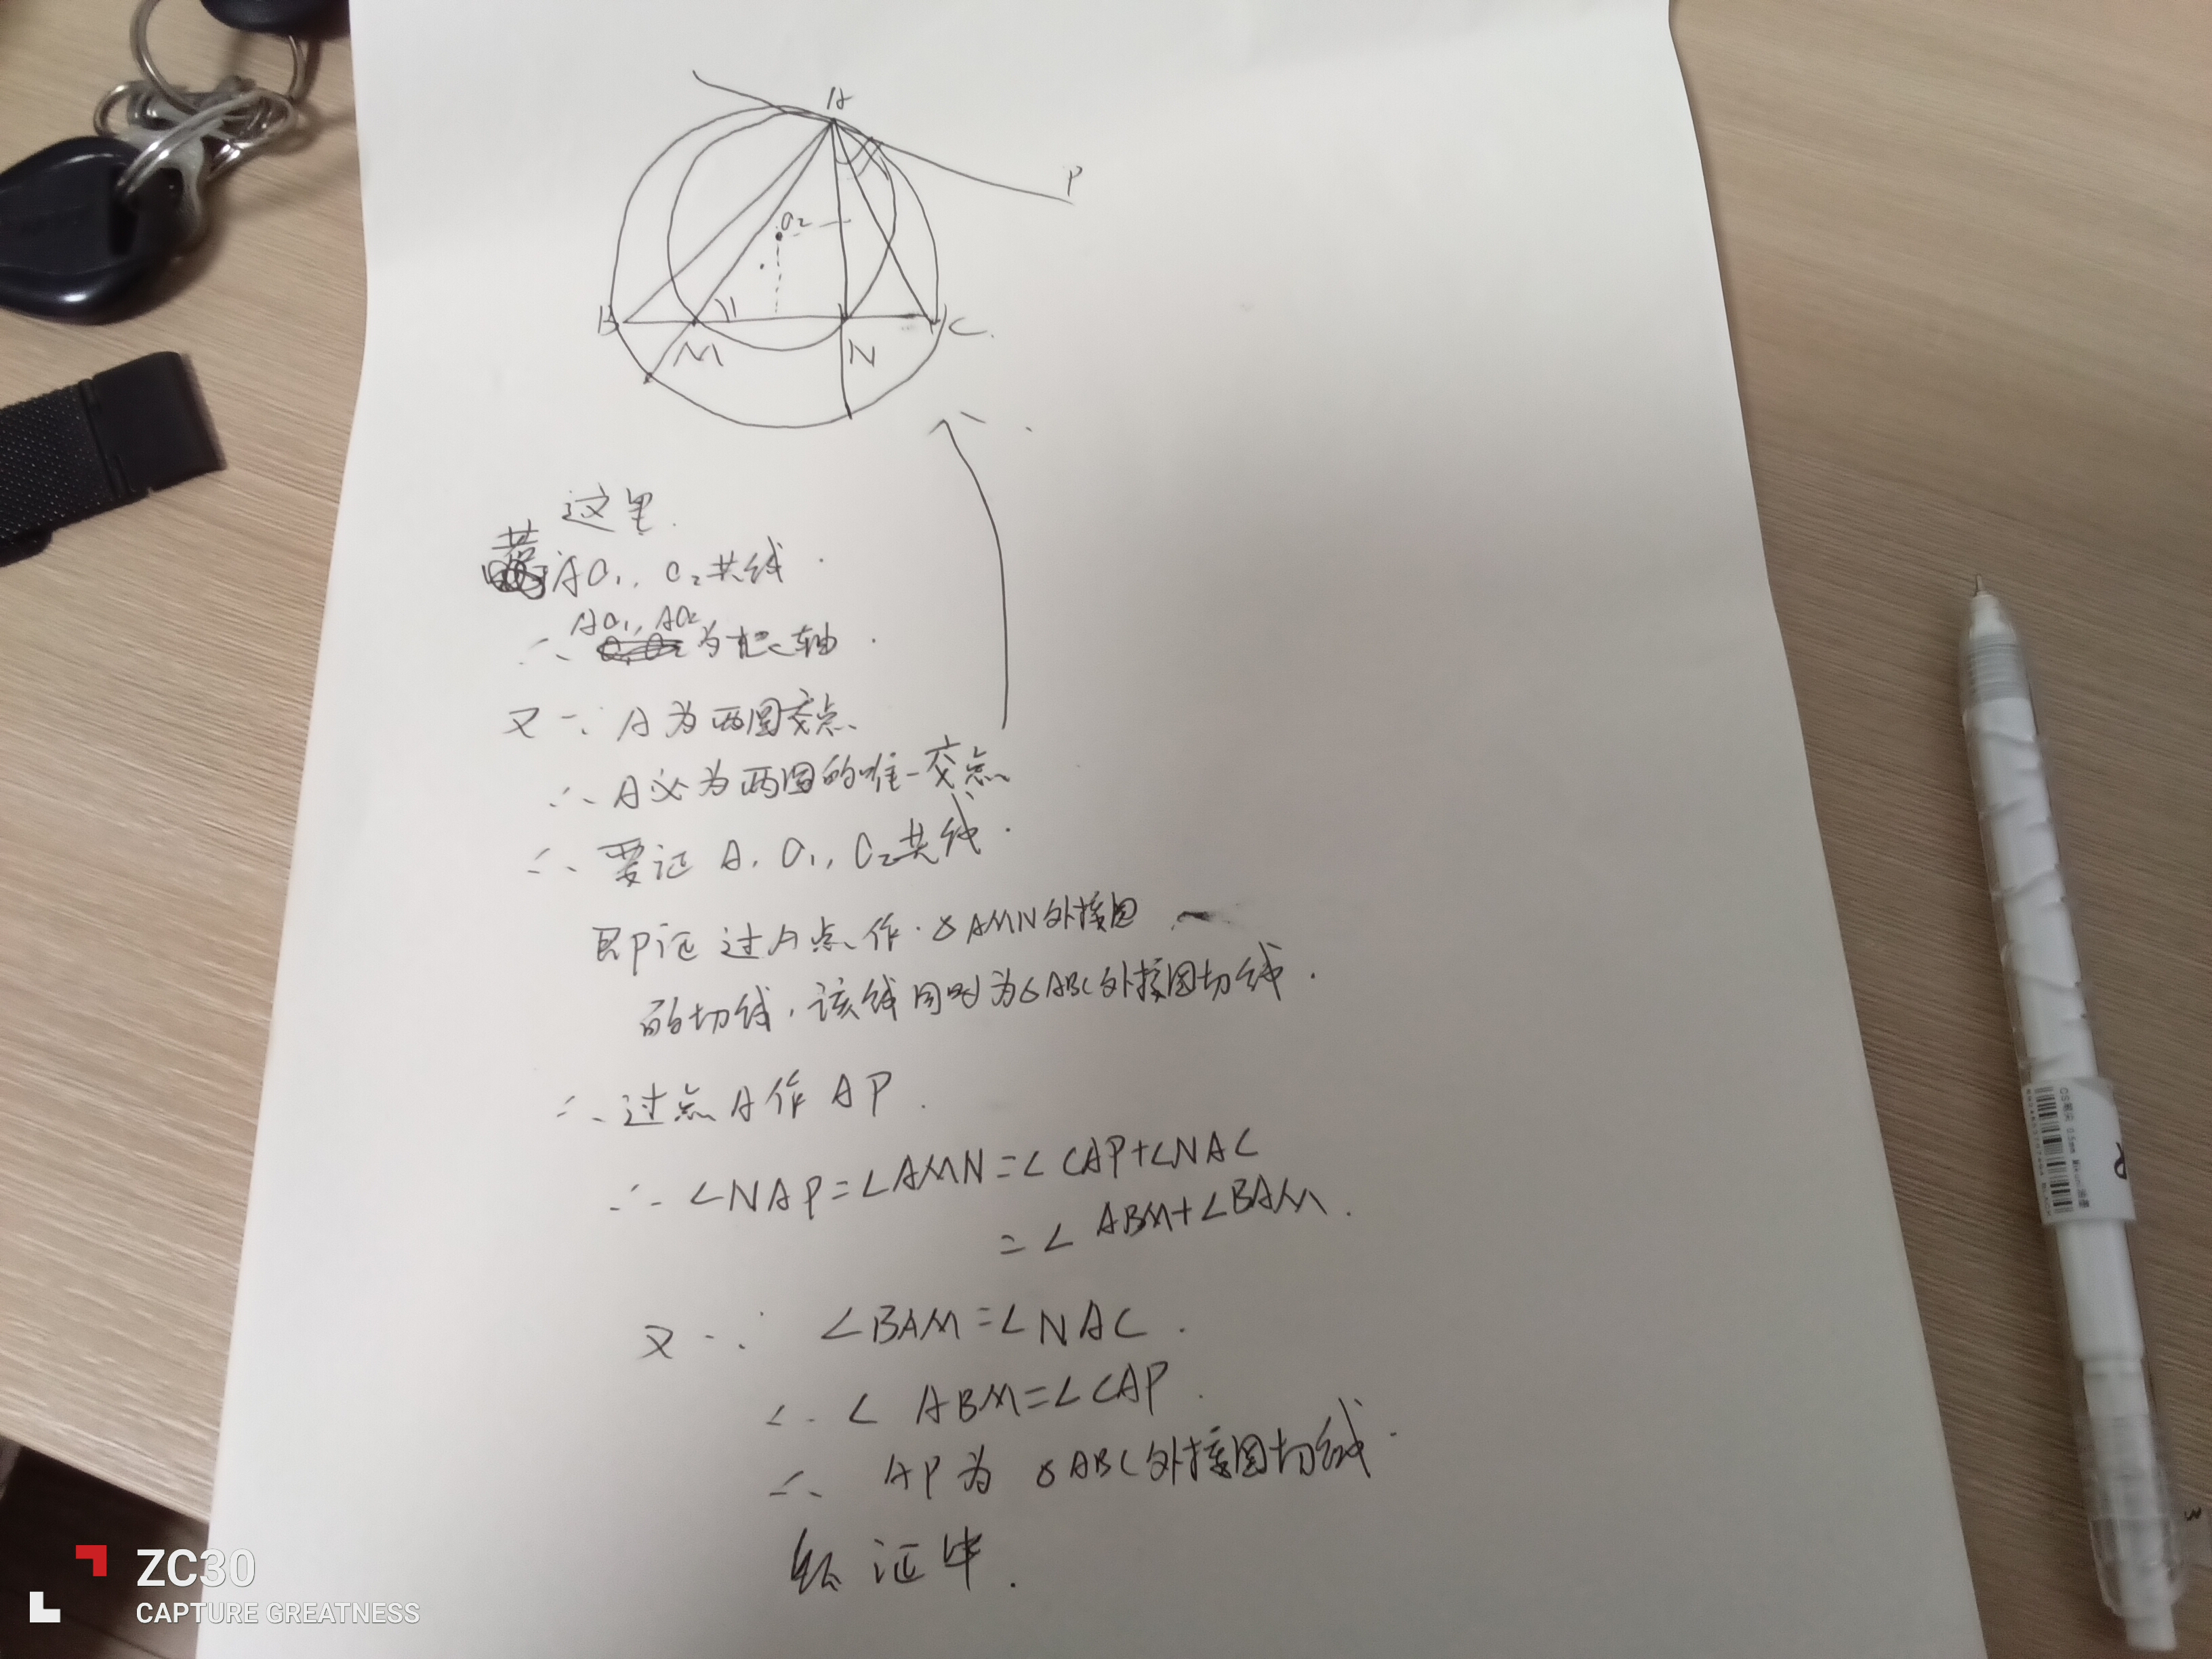 A
P
O₂
B
M
N
C
这里.
若A O₁, O₂共线.
∴ AO₁, AO₂为根轴.
又∵ A为两圆交点.
∴ A必为两圆的唯一交点
∴ 要证 A, O₁, O₂共线.
即证 过A点作△AMN外接圆
的切线, 该线同时为△ABC外接圆切线.
∴ 过点A作AP.
∴ ∠NAP=∠AMN=∠CAP+∠NAC
=∠ABM+∠BAM.
又∵ ∠BAM=∠NAC.
∴ ∠ABM=∠CAP.
∴ AP为△ABC外接圆切线.
证毕.
ZC30
CAPTURE GREATNESS